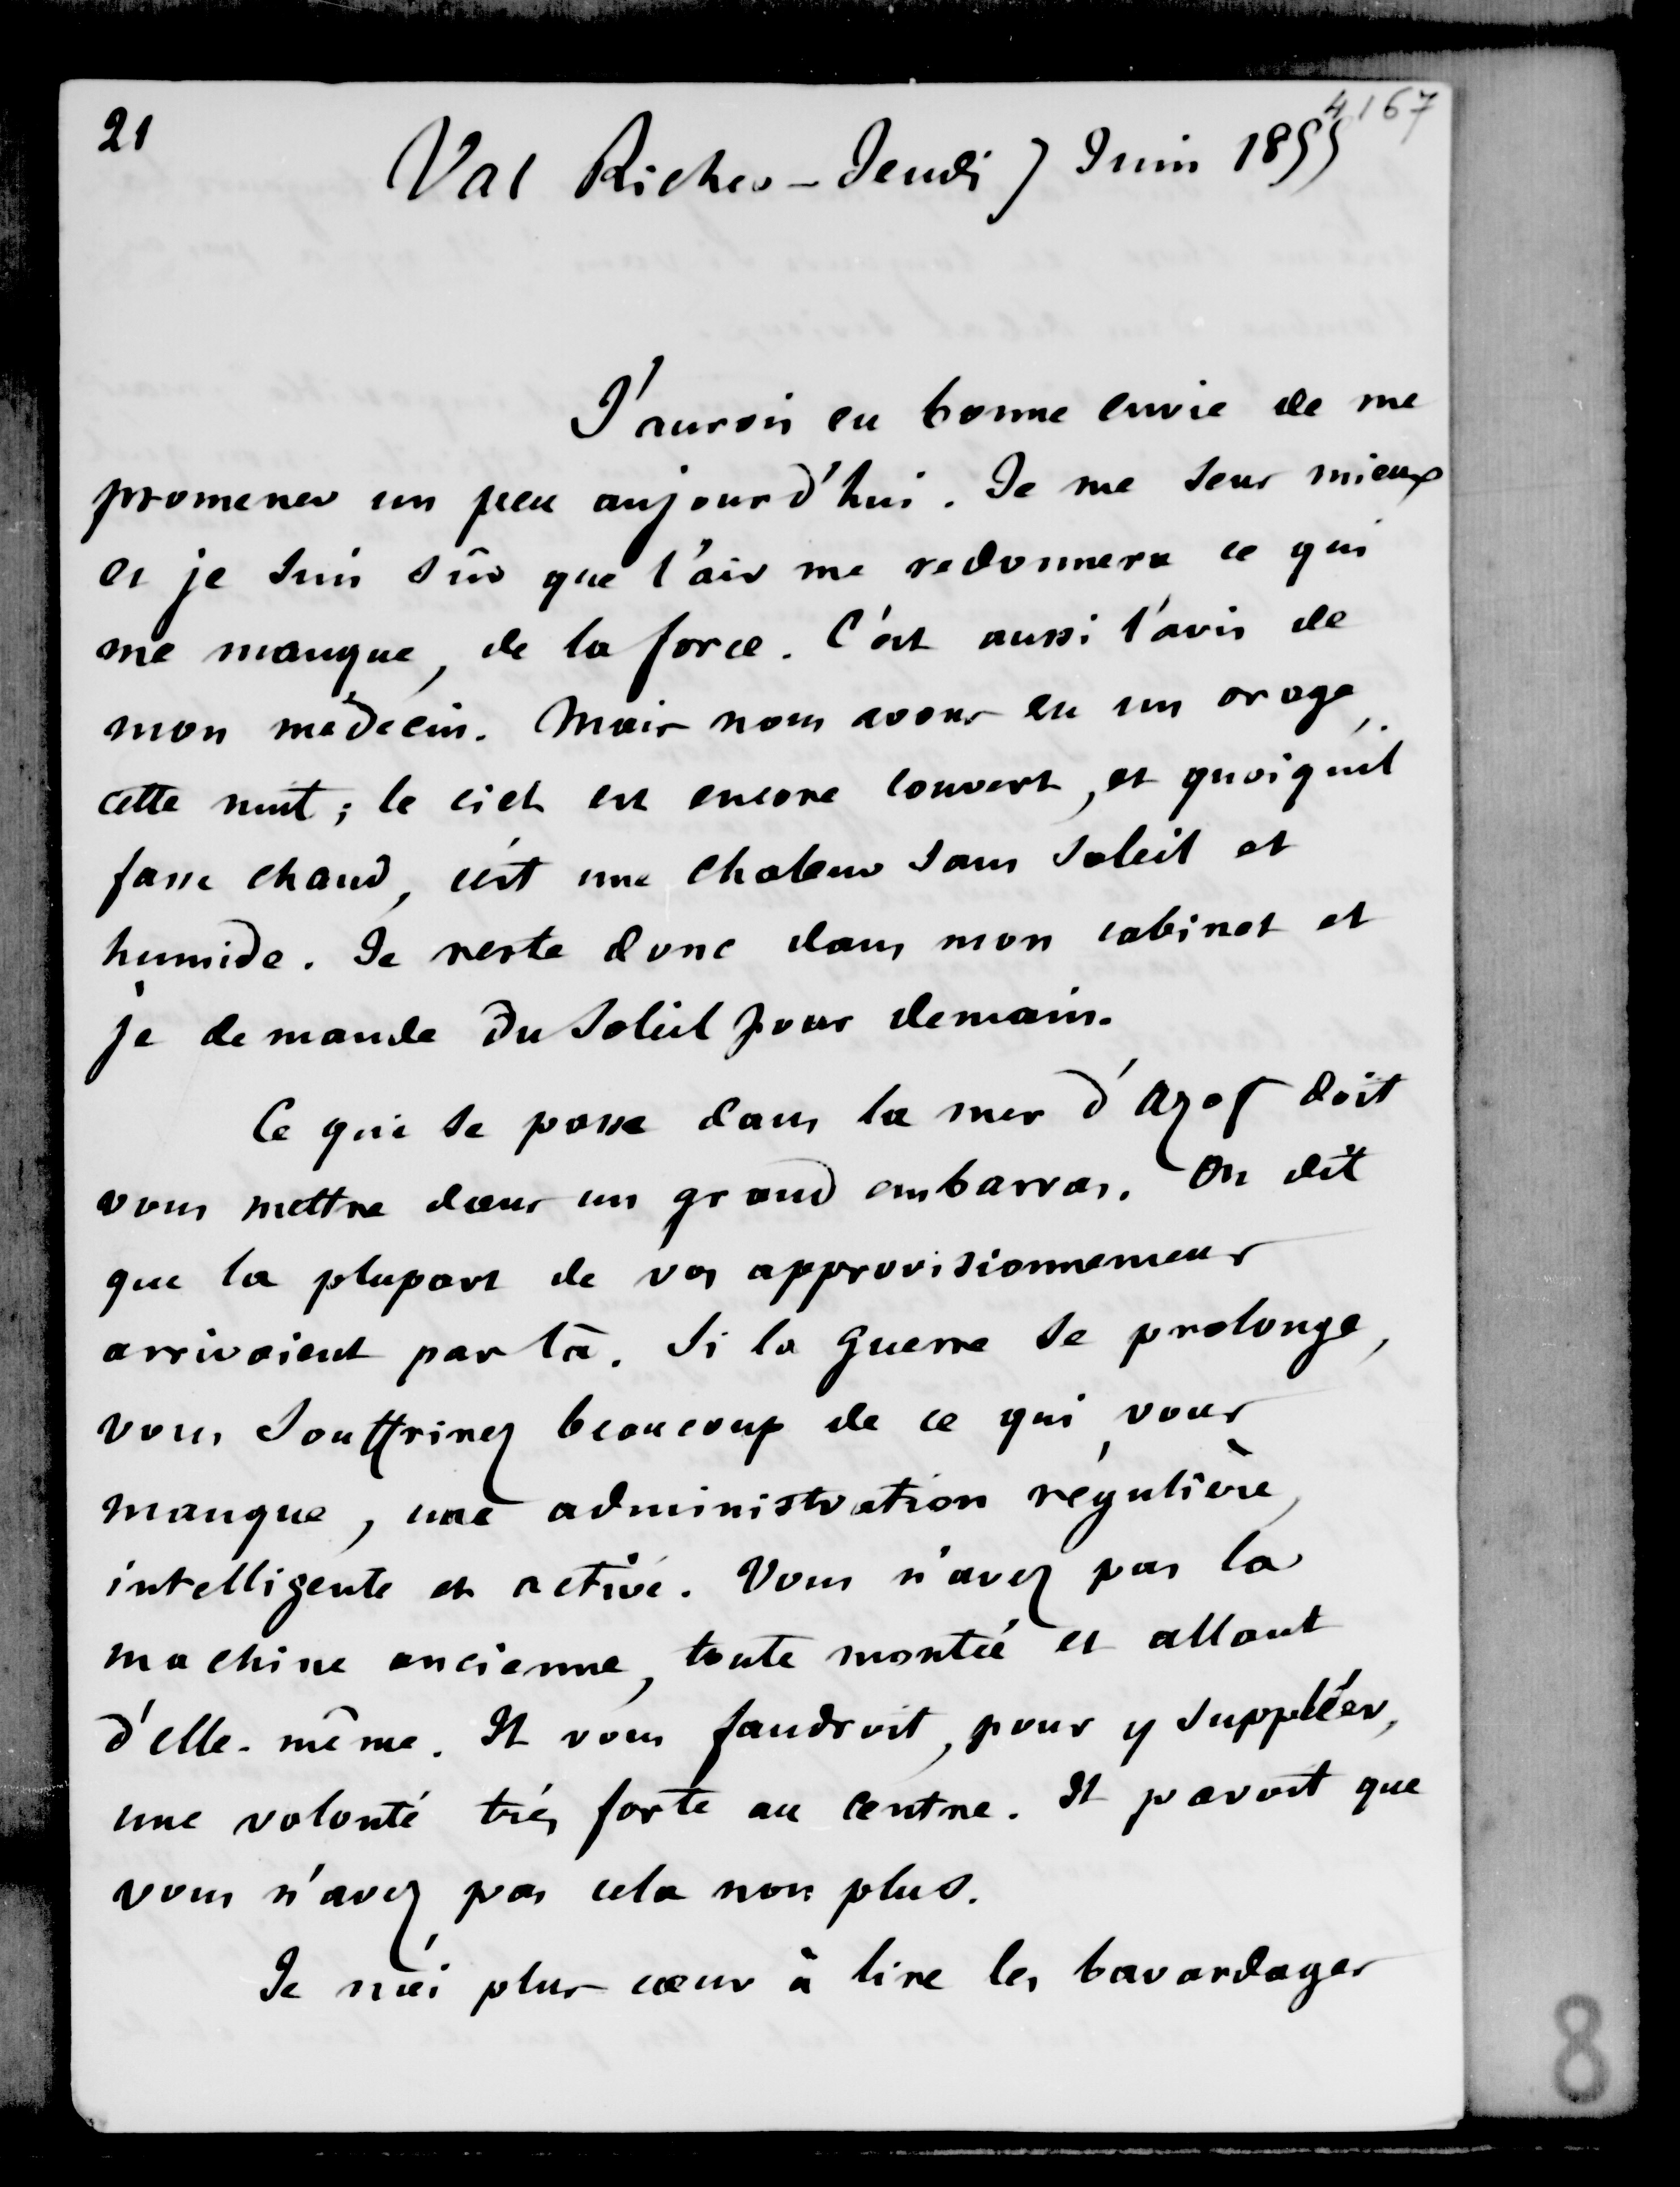 21
4167
Val Richer - Jeudi 7 Juin 1855
J'aurois eu bonne envie de me
promener un peu aujourd'hui. Je me sens mieux
et je suis sûr que l'air me redonnera ce qui
me manque, de la force. C'est aussi l'avis de
mon médecin. Mais nous avons eu un orage
cette nuit; le ciel est encore couvert, et quoiqu'il
fasse chaud, c'est une chaleur sans soleil et
humide. Je reste donc dans mon cabinet et
je demande du soleil pour demain.
Ce qui se passe dans la mer d'Azof doit
vous mettre dans un grand embarras. On dit
que la plupart de vos approvisionnemens
arrivoient par là. Si la guerre se prolonge,
vous souffrirez beaucoup de ce qui vous
manque, une administration régulière,
intelligente et active. Vous n'avez pas la
machine ancienne, toute montée et allant
d'elle-même. Il vous faudroit, pour y suppléer,
une volonté très forte au centre. Il paroit que
vous n'avez pas cela non plus.
Je n'ai plus cœur à lire les bavardages
8